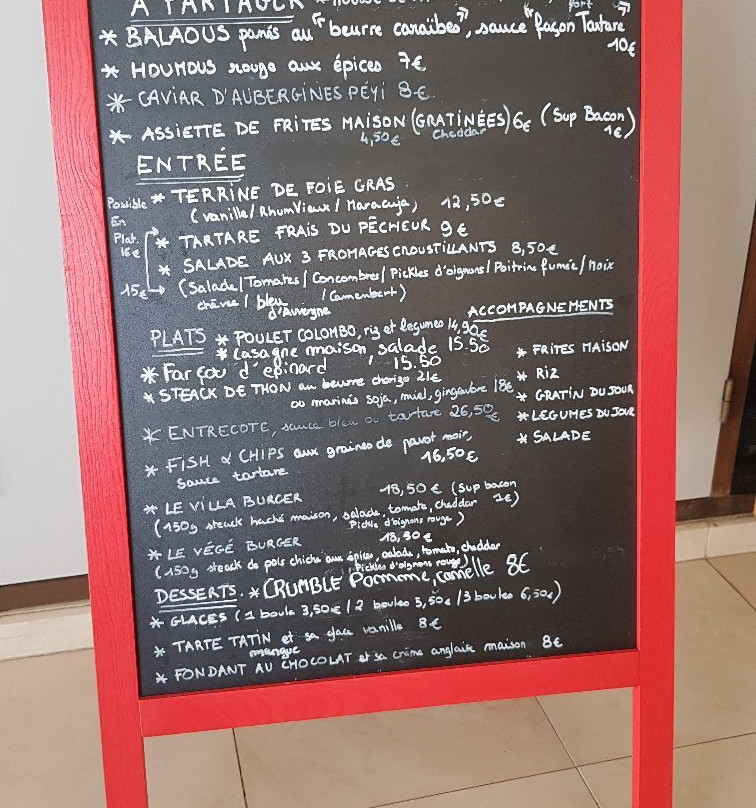 A PARTAGER *
* BALAOUS panés au "beurre caraïbes", sauce "façon Tartare"
10€
* HOUMOUS rouge aux épices 7€
* CAVIAR D'AUBERGINES PÉYI 8€
* ASSIETTE DE FRITES MAISON (GRATINÉES) 6€ (Sup Bacon)
4,50€ Cheddar 1€
ENTRÉE
* TERRINE DE FOIE GRAS
(vanille/RhumVieux/Maracuja) 12,50€
Possible
En
Plat.
16€
* TARTARE FRAIS DU PÊCHEUR 9€
* SALADE AUX 3 FROMAGES CROUSTILLANTS 8,50€
15€ (Salade/Tomates/Concombres/Pickles d'oignons/Poitrine fumée/noix
chèvre/bleu d'Auvergne/Camembert)
ACCOMPAGNEMENTS
PLATS * POULET COLOMBO, riz et legumes 14,90€
* Lasagne maison, salade 15.50
* Far çou d'epinard 15.50
* STEACK DE THON au beurre chorizo 21€
ou marinés soja, miel, gingembre 18€
* ENTRECOTE, sauce bleu ou tartare 26,50€
* FISH & CHIPS aux graines de pavot noir,
sauce tartare 16,50€
* FRITES MAISON
* RIZ
* GRATIN DU JOUR
* LEGUMES DU JOUR
* SALADE
* LE VILLA BURGER 18,50€ (Sup bacon 1€)
(150g steack haché maison, salade, tomate, cheddar
Pickle d'oignons rouge)
* LE VÉGÉ BURGER 18,50€
(150g steack de pois chiche aux épices, salade, tomate, cheddar
Pickles d'oignons rouge)
DESSERTS. * CRUMBLE Pomme, canelle 8€
* GLACES (1 boule 3,50€/2 boules 5,50€/3 boules 6,50€)
* TARTE TATIN et sa glace vanille 8€
mangue
* FONDANT AU CHOCOLAT et sa crème anglaise maison 8€